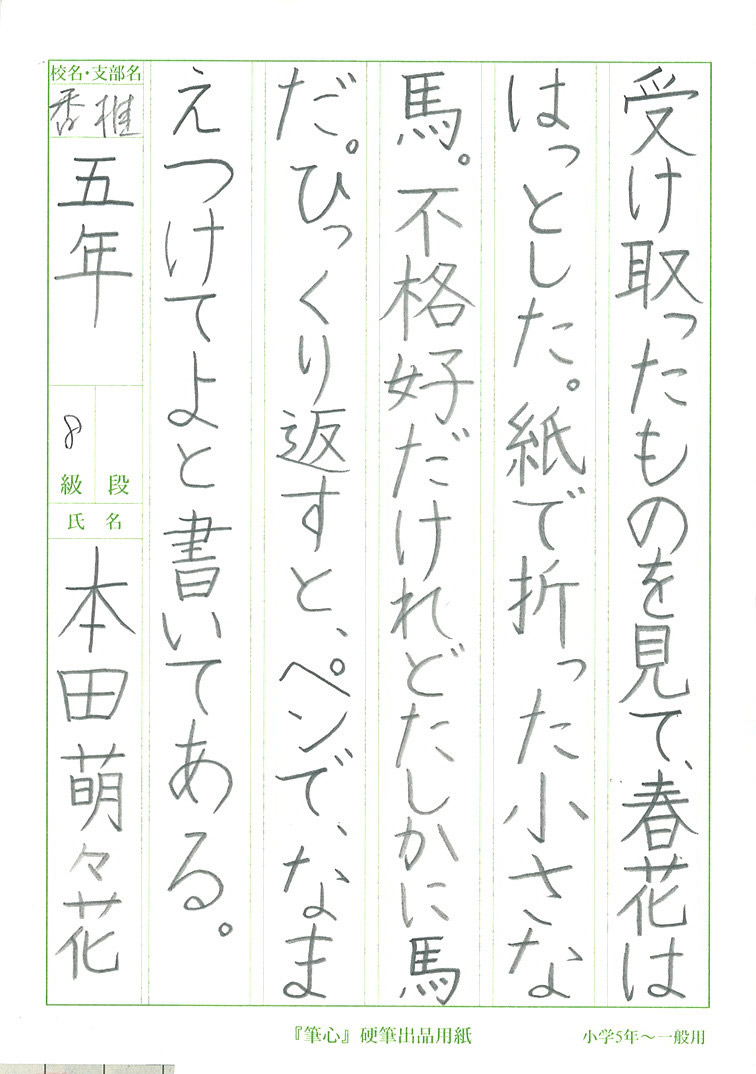 受け取ったものを見て、春花は
はっとした。紙で折った小さな
馬。不格好だけれどたしかに馬
だ。ひっくり返すと、ペンで、なま
えつけてよと書いてある。
校名・支部名
香椎
五年
8
級 段
氏名
本田萌々花
『筆心』硬筆出品用紙
小学5年〜一般用